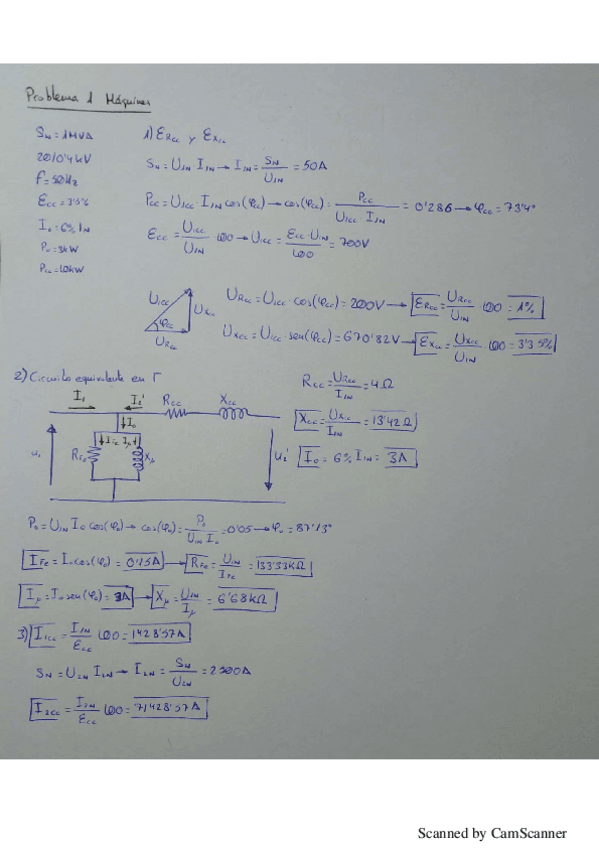 Problema 1 Máquinas
SN = 1MVA
20/0'4 kV
f = 50Hz
Ecc = 3'5%
Io = 6% IN
Po = 3kW
Pcc = 10kW
1) ERcc y EXcc
SN = U1N I1N → I1N = SN/U1N = 50A
Pcc = U1cc · I1N cos(φcc) → cos(φcc) = Pcc/(U1cc · I1N) = 0'286 → φcc = 73'4°
Ecc = U1cc/U1N · 100 → U1cc = Ecc · U1N/100 = 700V
U1cc
UXcc
φcc
URcc
URcc = U1cc · cos(φcc) = 200V → ERcc = URcc/U1N · 100 = 1%
UXcc = U1cc · sen(φcc) = 670'82V → EXcc = UXcc/U1N · 100 = 3'35%
2) Circuito equivalente en Γ
I1
I2'
Rcc
Xcc
Io
IFe
Iμ
RFe
Xμ
U1
U2'
Rcc = URcc/I1N = 4Ω
Xcc = UXcc/I1N = 13'42Ω
Io = 6% I1N = 3A
Po = U1N Io cos(φo) → cos(φo) = Po/(U1N Io) = 0'05 → φo = 87'13°
IFe = Io cos(φo) = 0'15A → RFe = U1N/IFe = 133'33KΩ
Iμ = Io sen(φo) = 3A → Xμ = U1N/Iμ = 6'68KΩ
3) I1cc = I1N/Ecc 100 = 1428'57A
SN = U2N I2N → I2N = SN/U2N = 2500A
I2cc = I2N/Ecc 100 = 71428'57A
Scanned by CamScanner